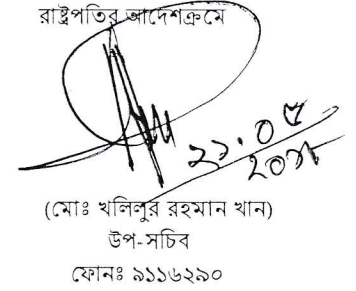 রাষ্ট্রপতির আদেশক্রমে
২১.০৫
(মোঃ খলিলুর রহমান খান)
উপ-সচিব
ফোনঃ ৯১১৬২৯০